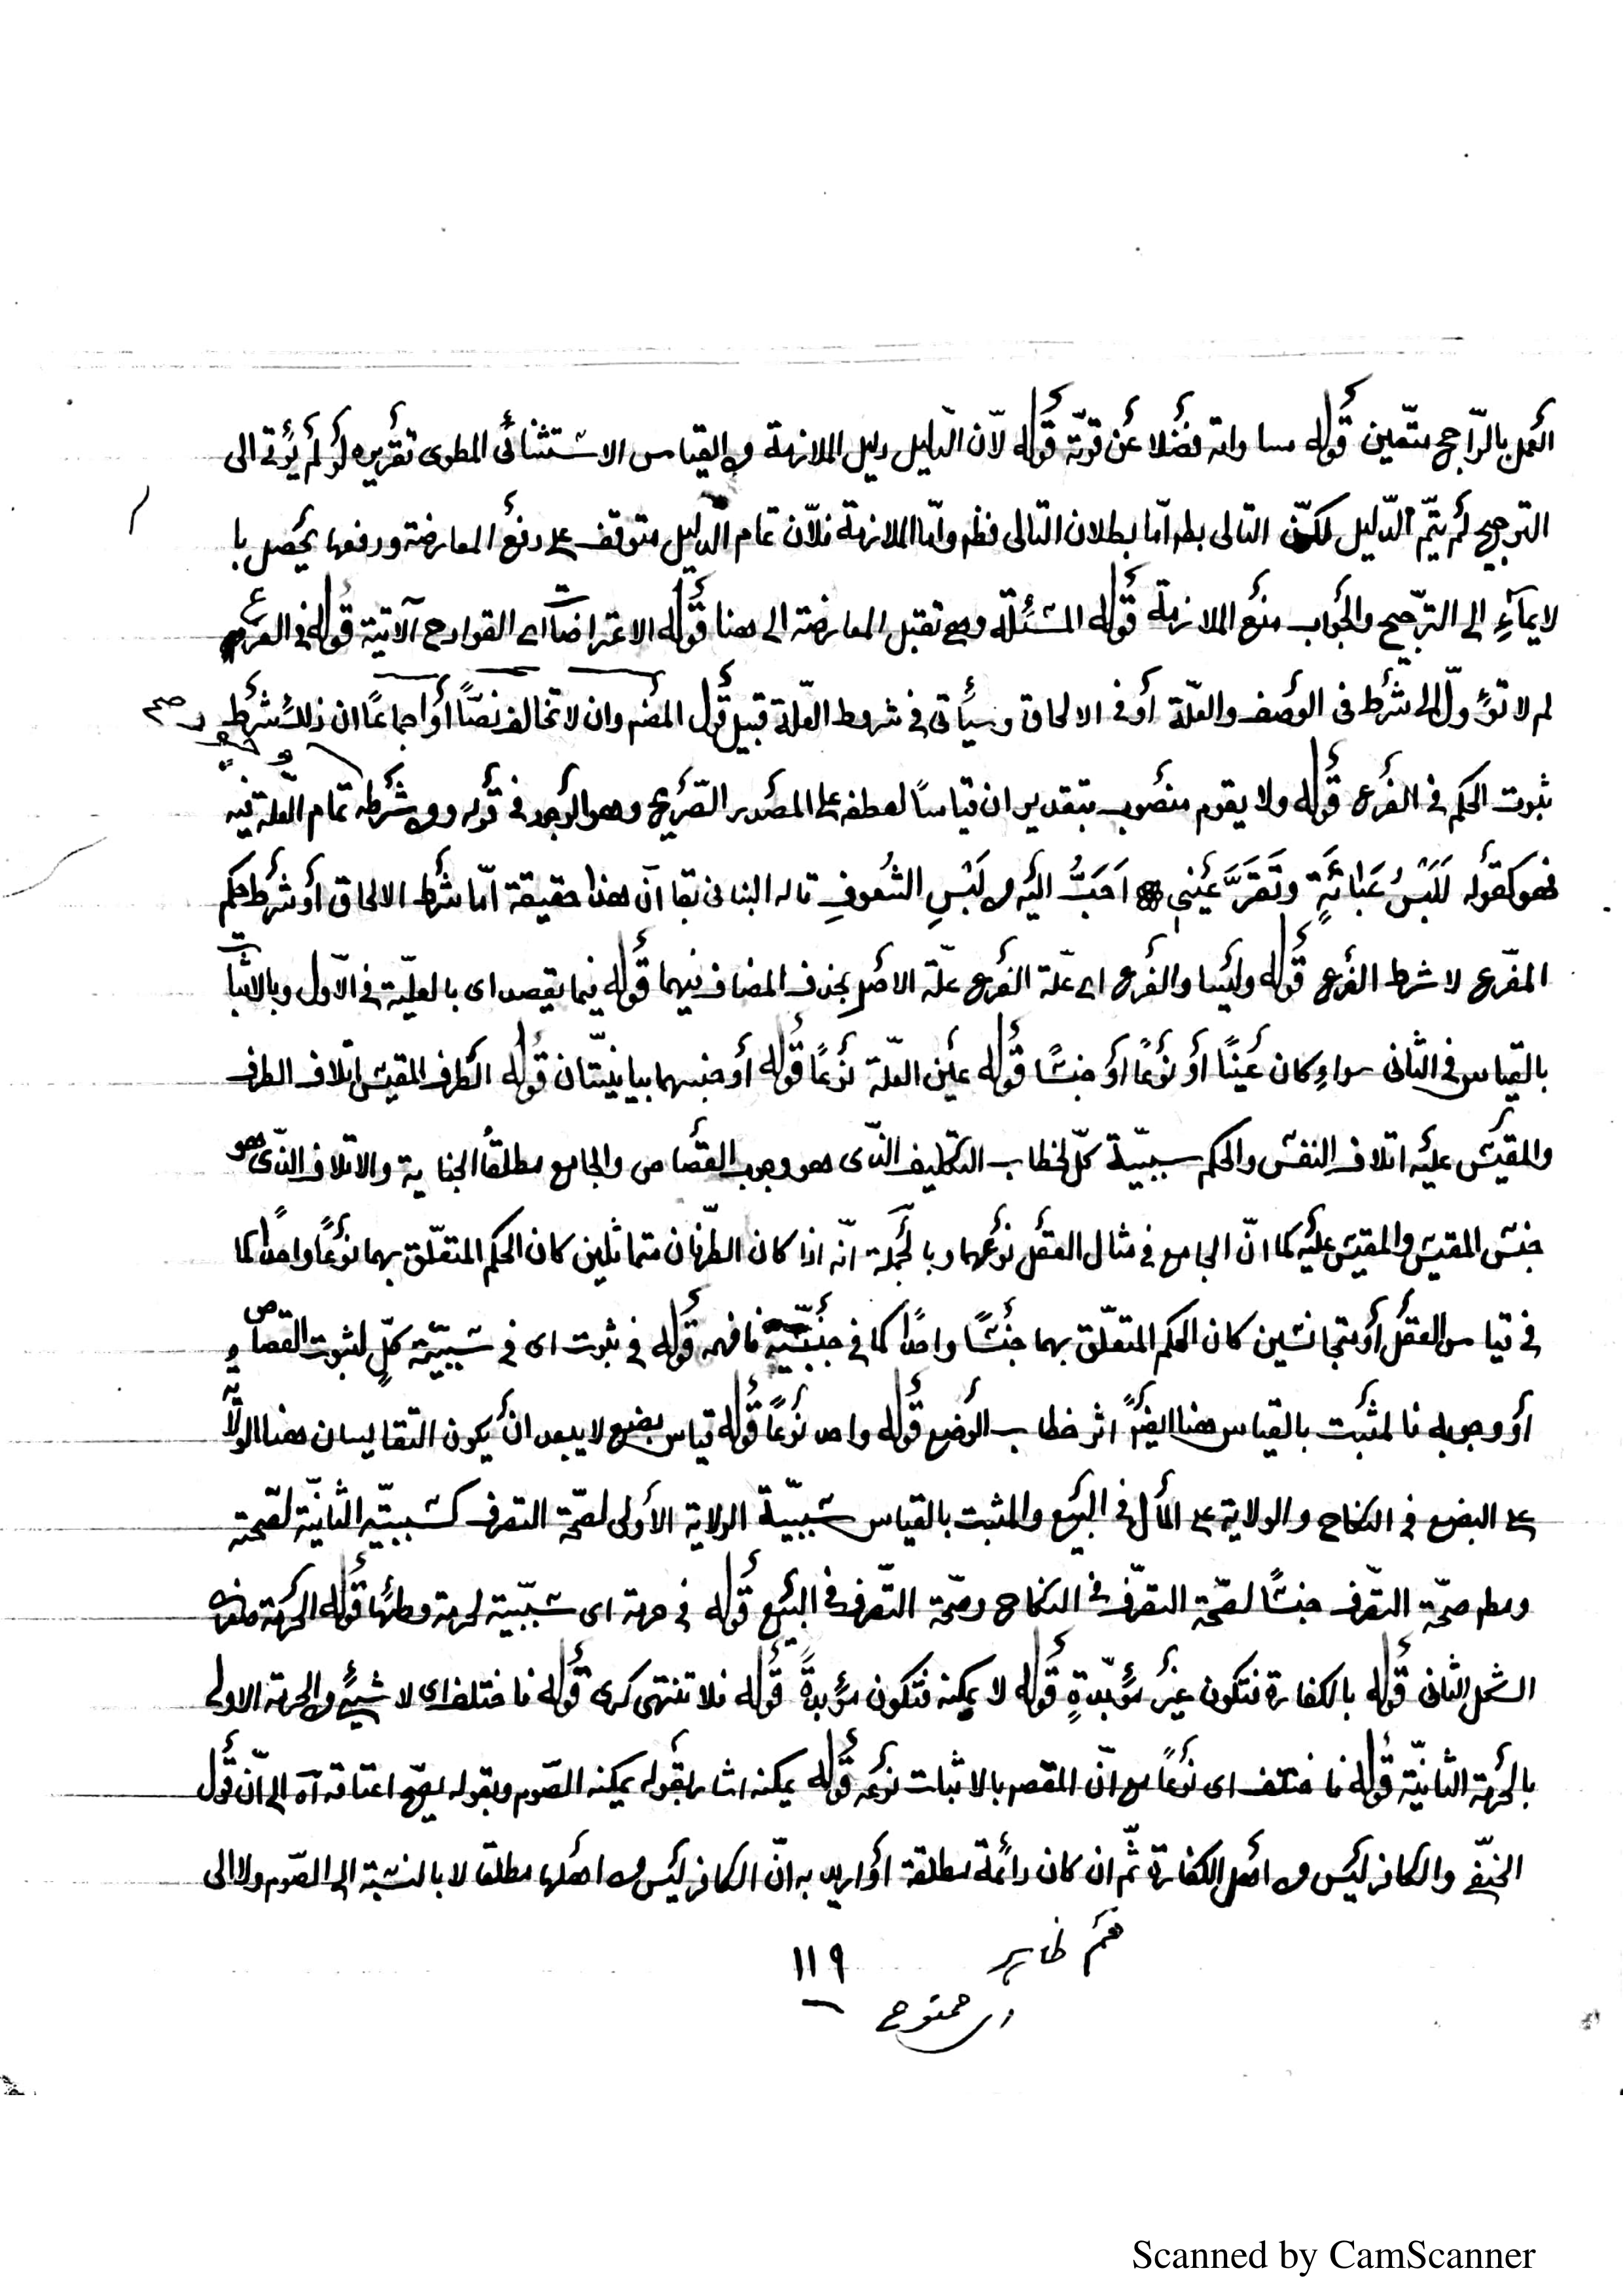 العمل بالرّاجح متعّين قوله مساواته فضلا عن قوّته قوله لأن الدّليل دليل الملازمة من القياس الاستثنائى المطوى تقريره لو لم يؤتى الى
الترجيح لم يتمّ الدّليل لكنّ التالى بط امّا بطلان التالى فظ وامّا الملازمة فلأن تمام الدّليل متوقف على دفع المعارضة ودفعها يحصل با
لايمآء الى الترّجيح والجواب منع الملازمة قوله المسئلة وهو تقبل المعارضة الى هنا قوله الاعتراضات اى القوادح الآتية قوله فى الفرع
لم لا تؤول الى شرط فى الوصف والعلّة أو فى الالحاق وسيأتى فى شروط العلّة قبيل قول المص وان لا تخالف نصّاً أو اجماعًا ان ذلك شرط
ثبوت الحكم فى الفرع قوله ولا يقوم منصوب بتقدير ان قياسًا لعطفه على المصدر الصّريح وهو الوجود فى قوله ومن شرطه تمام العلّة فيه
فهو كقوله لَلُبْسُ عَبائَةٍ وتَقَرَّ عَيْنى اَحَبُّ اليّه من لُبْسِ الشُفوفِ قاله البنانى بقا آن هذا حقيقة امّا شرط الالحاق أو شرط حكم
المفّرع لا شرط الفرع قوله وليسا والفرع اى علّة الفرع علّة الاصل بحذف المضاف فيهما قوله فيما يقصد اى بالعليّة فى الأول وبالاثبات
بالقياس فى الثانى سواء كان عينًا أو نوعًا أو جنسًا قوله عين العلّة نوعًا قوله أو جنسهما بيا نيّتان قوله الطرف المقيس اتلاف الطرف
والمقيس عليه اتلاف النفس والحكم سببيّة كلّ لخطاب التكليف الذّى هو وجوب القصاص والجامع مطلقُ الجناية والاتلاف الذّى هو
جنس المقيس والمقيس عليه كما انّ الجامع فى مثال العقل نوعهما وبالجملة انّه اذا كان الطّرفان متماثلين كان الحكم المتعلّق بهما نوعًا واحدًا كما
فى قياس العقل أو متجانسين كان الحكم المتعلّق بهما جنسًا واحدًا كما فى جنسيّته فافهم قوله فى ثبوت اى فى سببيّة كلّ لثبوت القصاص
أو وجوبه فالمثبت بالقياس هنا ايضً اثر خطاب الوضع قوله واحد نوعًا قوله قياس بضع لا يبعد ان يكون المتقايسان هنا الولاية
على البضع فى النكاح والولاية على المال فى البيع والمثبت بالقياس سببيّة الولاية الأولى لصّحة التصرف كسببيّة الثانيّة لصّحته
ومط صحّة التصّرف جنسًا لصحّة التصّرف فى النكاح وصّحة التصّرف فى البيع قوله فى حرمة اى سببّية لحرمة وطئها قوله الحرمة
الشّكل الثانى قوله بالكفارة فتكون غير مؤبّدةٍ قوله لا يمكنه فتكون مؤبدةً قوله فلا تنتهى كبرى قوله فاختلف اى لا شيئ من الحرمة الاولى
بالحرمة الثانيّة قوله فاختلف اى نوعًا مع انّ المقصد بالاثبات نوعه قوله يمكنه اشار بقوله يمكنه الصّوم وبقوله يصّح اعتاقه آه الى انّ قول
الحنفّى والكافر ليس من اهل الكفارة ثّم ان كان دائمة مطلقة أو اريد به انّ الكافر ليس من اهلها مطلقا لا بالنسبة الى الصّوم ولا الى
١١٩
Scanned by CamScanner